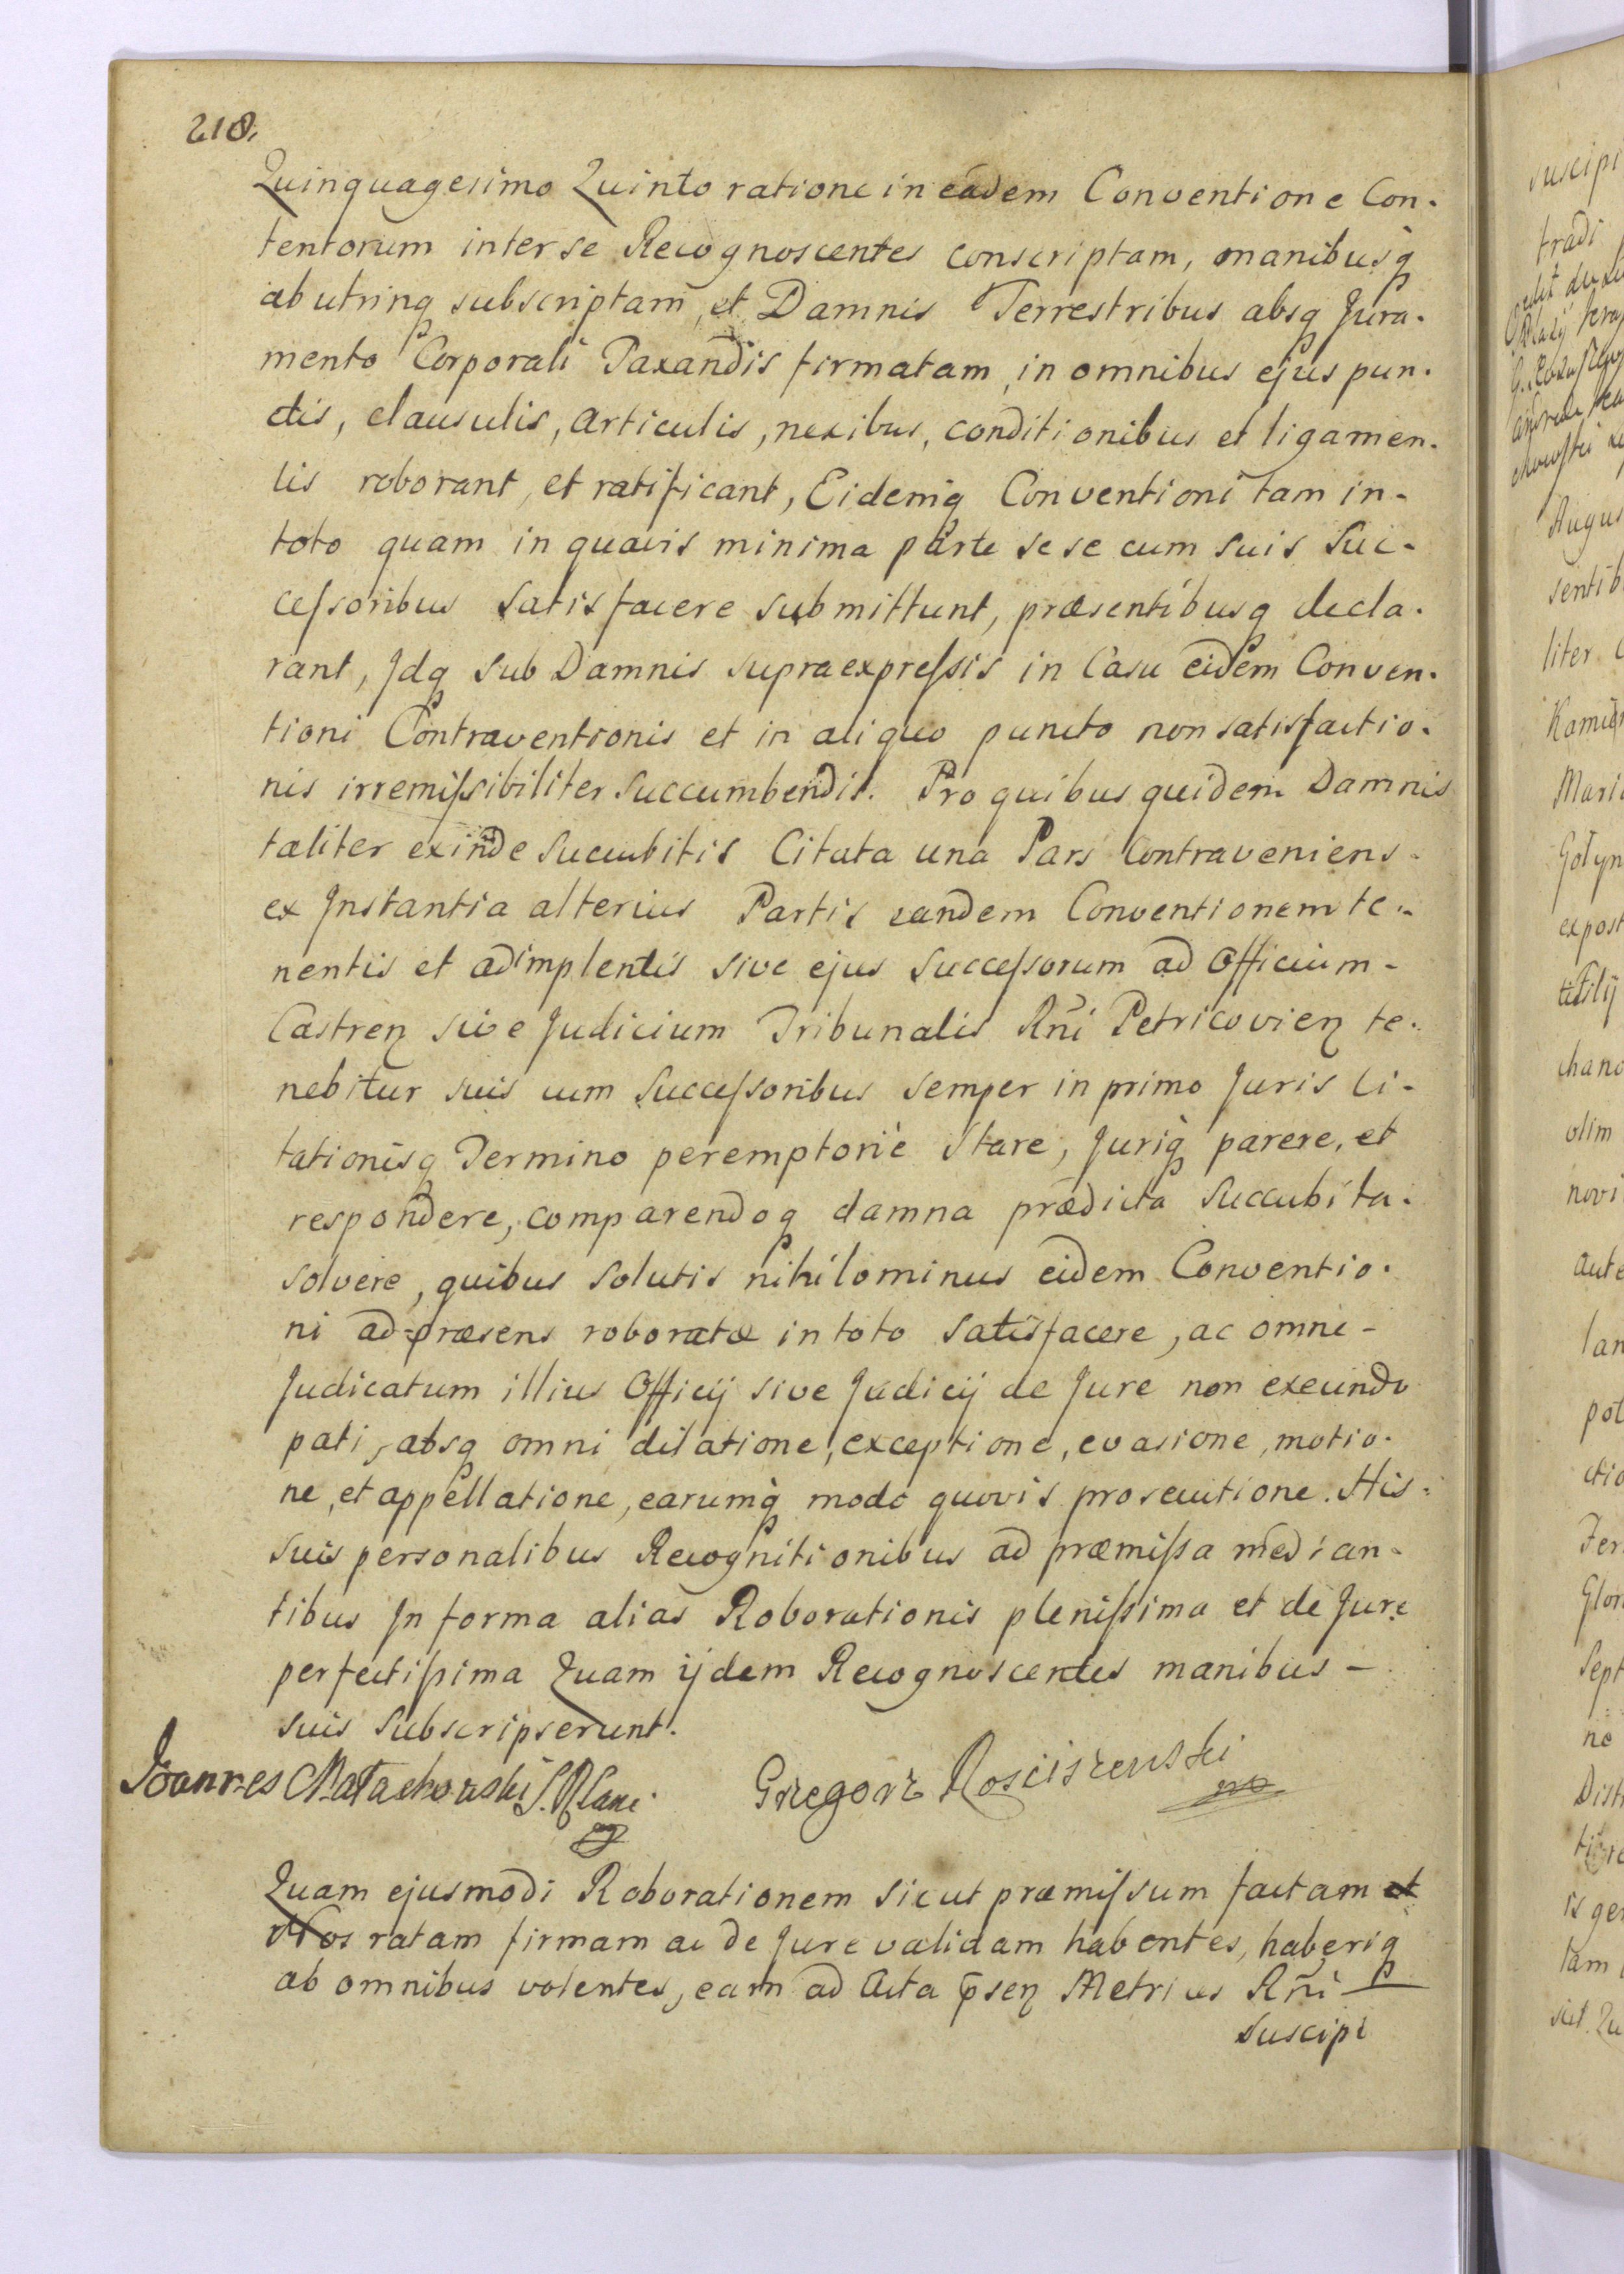 218.
Quinquagesimo Quinto ratione in eadem Conventione Con-
tentorum inter se Recognoscentes conscriptam, manibusq
ab utrinq subscriptam, et Damnis Terrestribus absq Jura-
mento Corporali Taxandis firmatam, in omnibus ejus pun-
ctis, clausulis, articulis, nexibus, conditionibus et ligamen-
tis roborant, et ratificant, Eidemq Conventioni tam in-
toto quam in quavis minima parte se se cum suis Suc-
ceſsoribus Satisfacere submittunt, præsentibusq decla-
rant, Jdq sub Damnis supraexpreſsis in Casu eidem Conven-
tioni Contraventionis et in aliquo puncto non satisfactio-
nis irremiſsibiliter Succumbendis. Pro quibus quidem Damnis
taliter exinde Succubitis Citata una Pars Contraveniens-
ex Jnstantia alterius Partis eandem Conventionem te-
nentis et adimplentis sive ejus Succeſsorum ad Officium-
Castreñ sive Judicium Tribunalis Rñi Petricovieñ te-
nebitur suis cum Succeſsoribus semper in primo Juris Ci-
tationisq Termino peremptoriè Stare, Juriq parere, et
respondere, comparendoq damna prædicta Succubita-
solvere, quibus solutis nihilominus eidem Conventio-
ni ad præsens roboratæ in toto Satisfacere, ac omne-
Judicatum illius Officij sive Judicij de Jure non exeundo
pati, absq omni dilatione, exceptione, evasione, motio-
ne, et appellatione, earumq modo quovis prosecutione. His-
suis personalibus Recognitionibus ad præmiſsa median-
tibus Jn forma alias Roborationis pleniſsima et de Jure
perfectiſsima Quam ijdem Recognoscentes manibus-
suis Subscripserunt.
Joannes Małachowski Grzegorz Rosciszewski
Quam ejusmodi Roborationem sicut præmiſsum factam et
Nos ratam firmam ac de Jure validam habentes, haberiq
ab omnibus volentes, eam ad Acta p̄señ Metrices Rñi
Suscipi